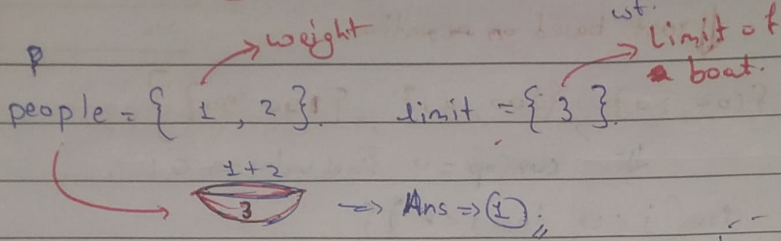 wt.
weight
limit of
boat.
P
people = { 1 , 2 }. limit = { 3 }.
1 + 2
3 => Ans => 1